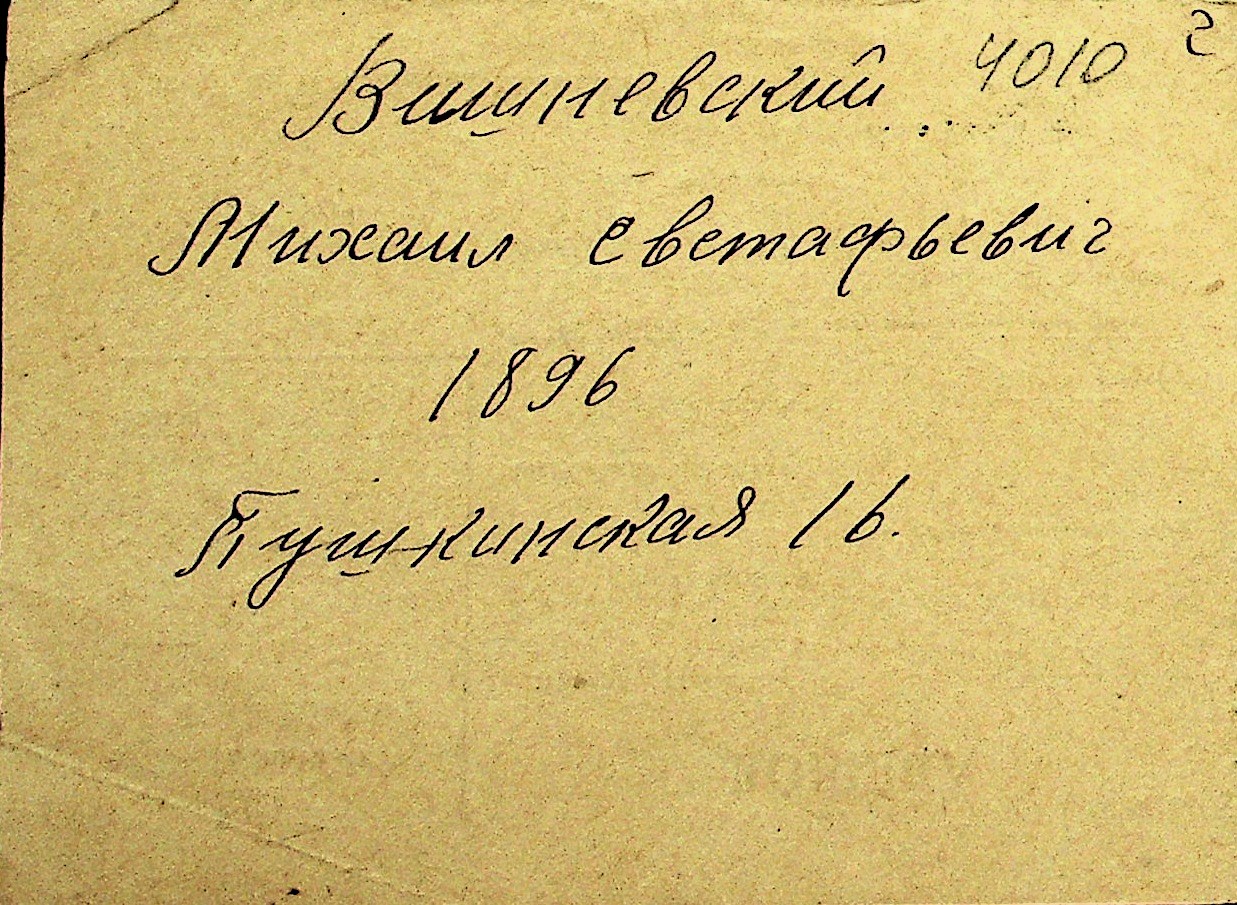 Вишневский 4010 2
Михаил Евстафьевич
1896
Пушкинская 16.